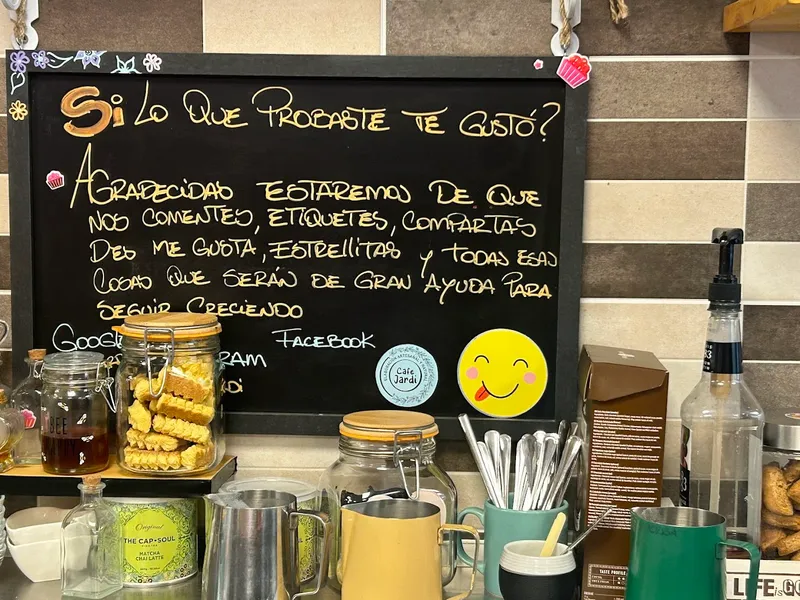 Si LO QUE PROBASTE TE GUSTÓ?
AGRADECIDAS ESTAREMOS DE QUE
NOS COMENTES, ETIQUETES, COMPARTAS
DES ME GUSTA, ESTRELLITAS Y TODAS ESAS
COSAS QUE SERÁN DE GRAN AYUDA PARA
SEGUIR CRECIENDO
GOOG
FACEBOOK
RAM
Cafe
Jardi
BEE
Original
THE CAP•SOUL
MATCHA
CHAI LATTE
TASTE PROFILE
LIFE IS GO